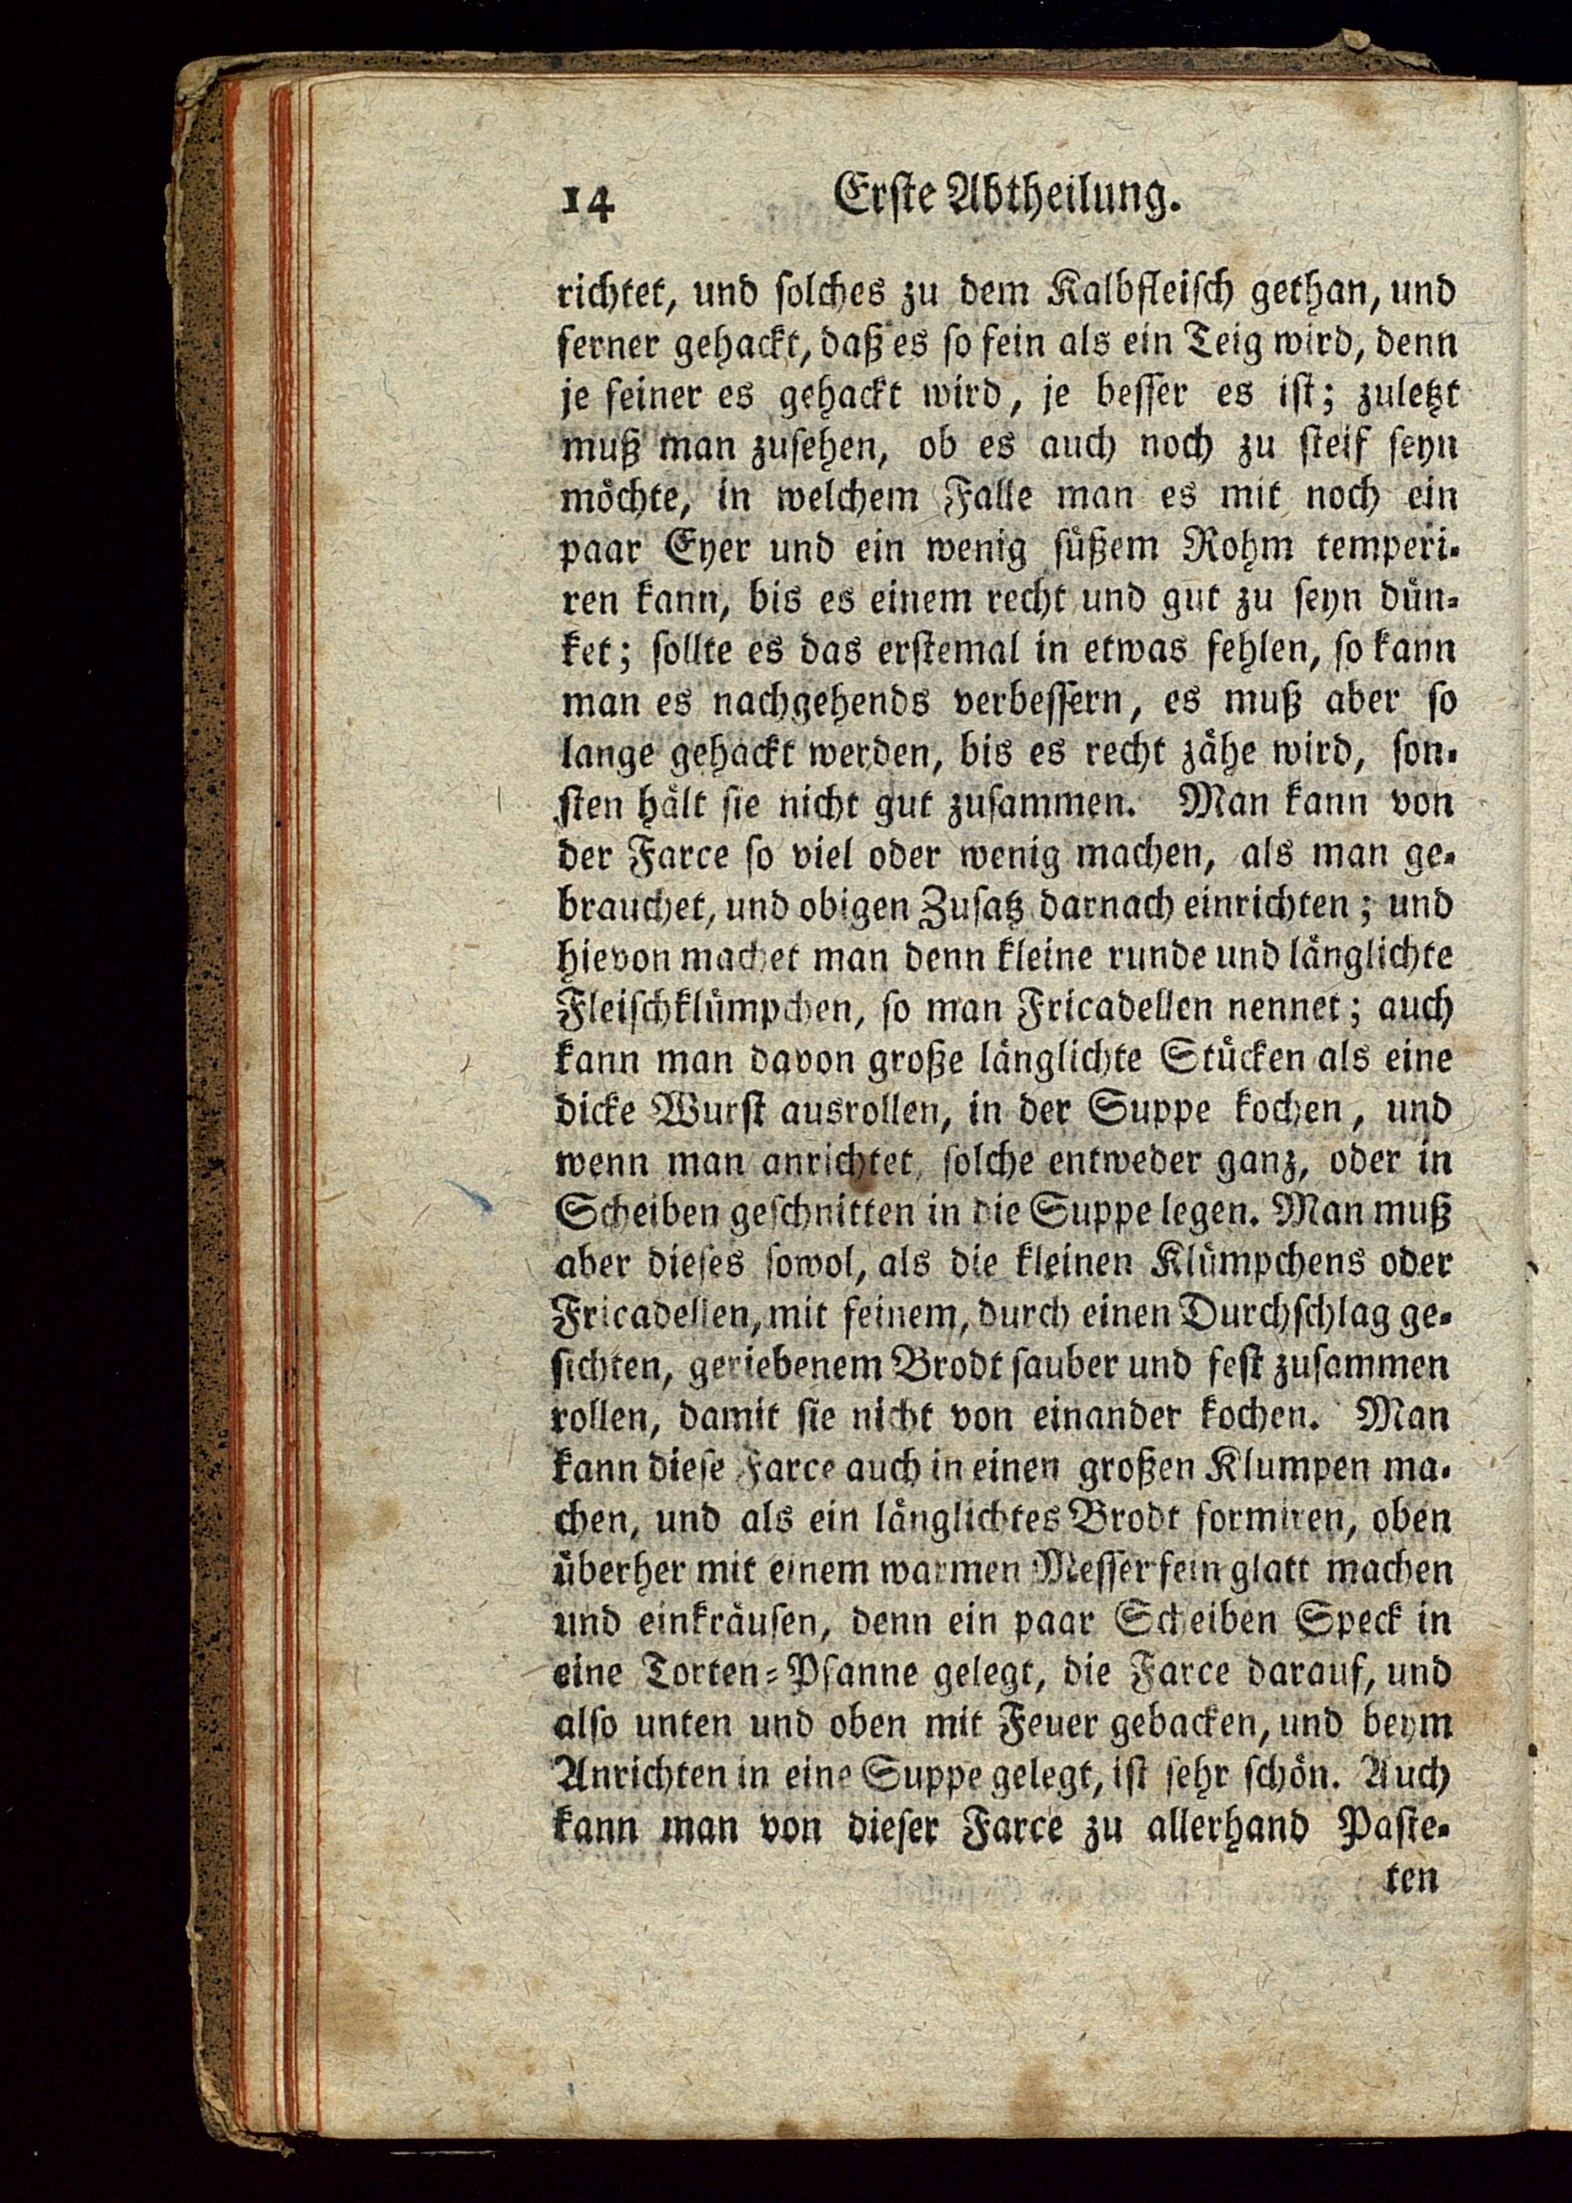 14 Erste Abtheilung.
richtet, und solches zu dem Kalbfleisch gethan, und
ferner gehackt, daß es so fein als ein Teig wird, denn
je feiner es gehackt wird, je besser es ist; zuletzt
muß man zusehen, ob es auch noch zu steif seyn
möchte, in welchem Falle man es mit noch ein
paar Eyer und ein wenig süßem Rohm temperi-
ren kann, bis es einem recht und gut zu seyn dün-
ket; sollte es das erstemal in etwas fehlen, so kann
man es nachgehends verbessern, es muß aber so
lange gehackt werden, bis es recht zähe wird, son-
sten hält sie nicht gut zusammen. Man kann von
der Farce so viel oder wenig machen, als man ge-
brauchet, und obigen Zusatz darnach einrichten; und
hievon machet man denn kleine runde und länglichte
Fleischklümpchen, so man Fricadellen nennet; auch
kann man davon große länglichte Stücken als eine
dicke Wurst ausrollen, in der Suppe kochen, und
wenn man anrichtet, solche entweder ganz, oder in
Scheiben geschnitten in die Suppe legen. Man muß
aber dieses sowol, als die kleinen Klümpchens oder
Fricadellen, mit feinem, durch einen Durchschlag ge-
sichten, geriebenem Brodt sauber und fest zusammen
rollen, damit sie nicht von einander kochen. Man
kann diese Farce auch in einen großen Klumpen ma-
chen, und als ein länglichtes Brodt formiren, oben
überher mit einem warmen Messer fein glatt machen
und einkräusen, denn ein paar Scheiben Speck in
eine Torten-Pfanne gelegt, die Farce darauf, und
also unten und oben mit Feuer gebacken, und beym
Anrichten in eine Suppe gelegt, ist sehr schön. Auch
kann man von dieser Farce zu allerhand Paste-
ten